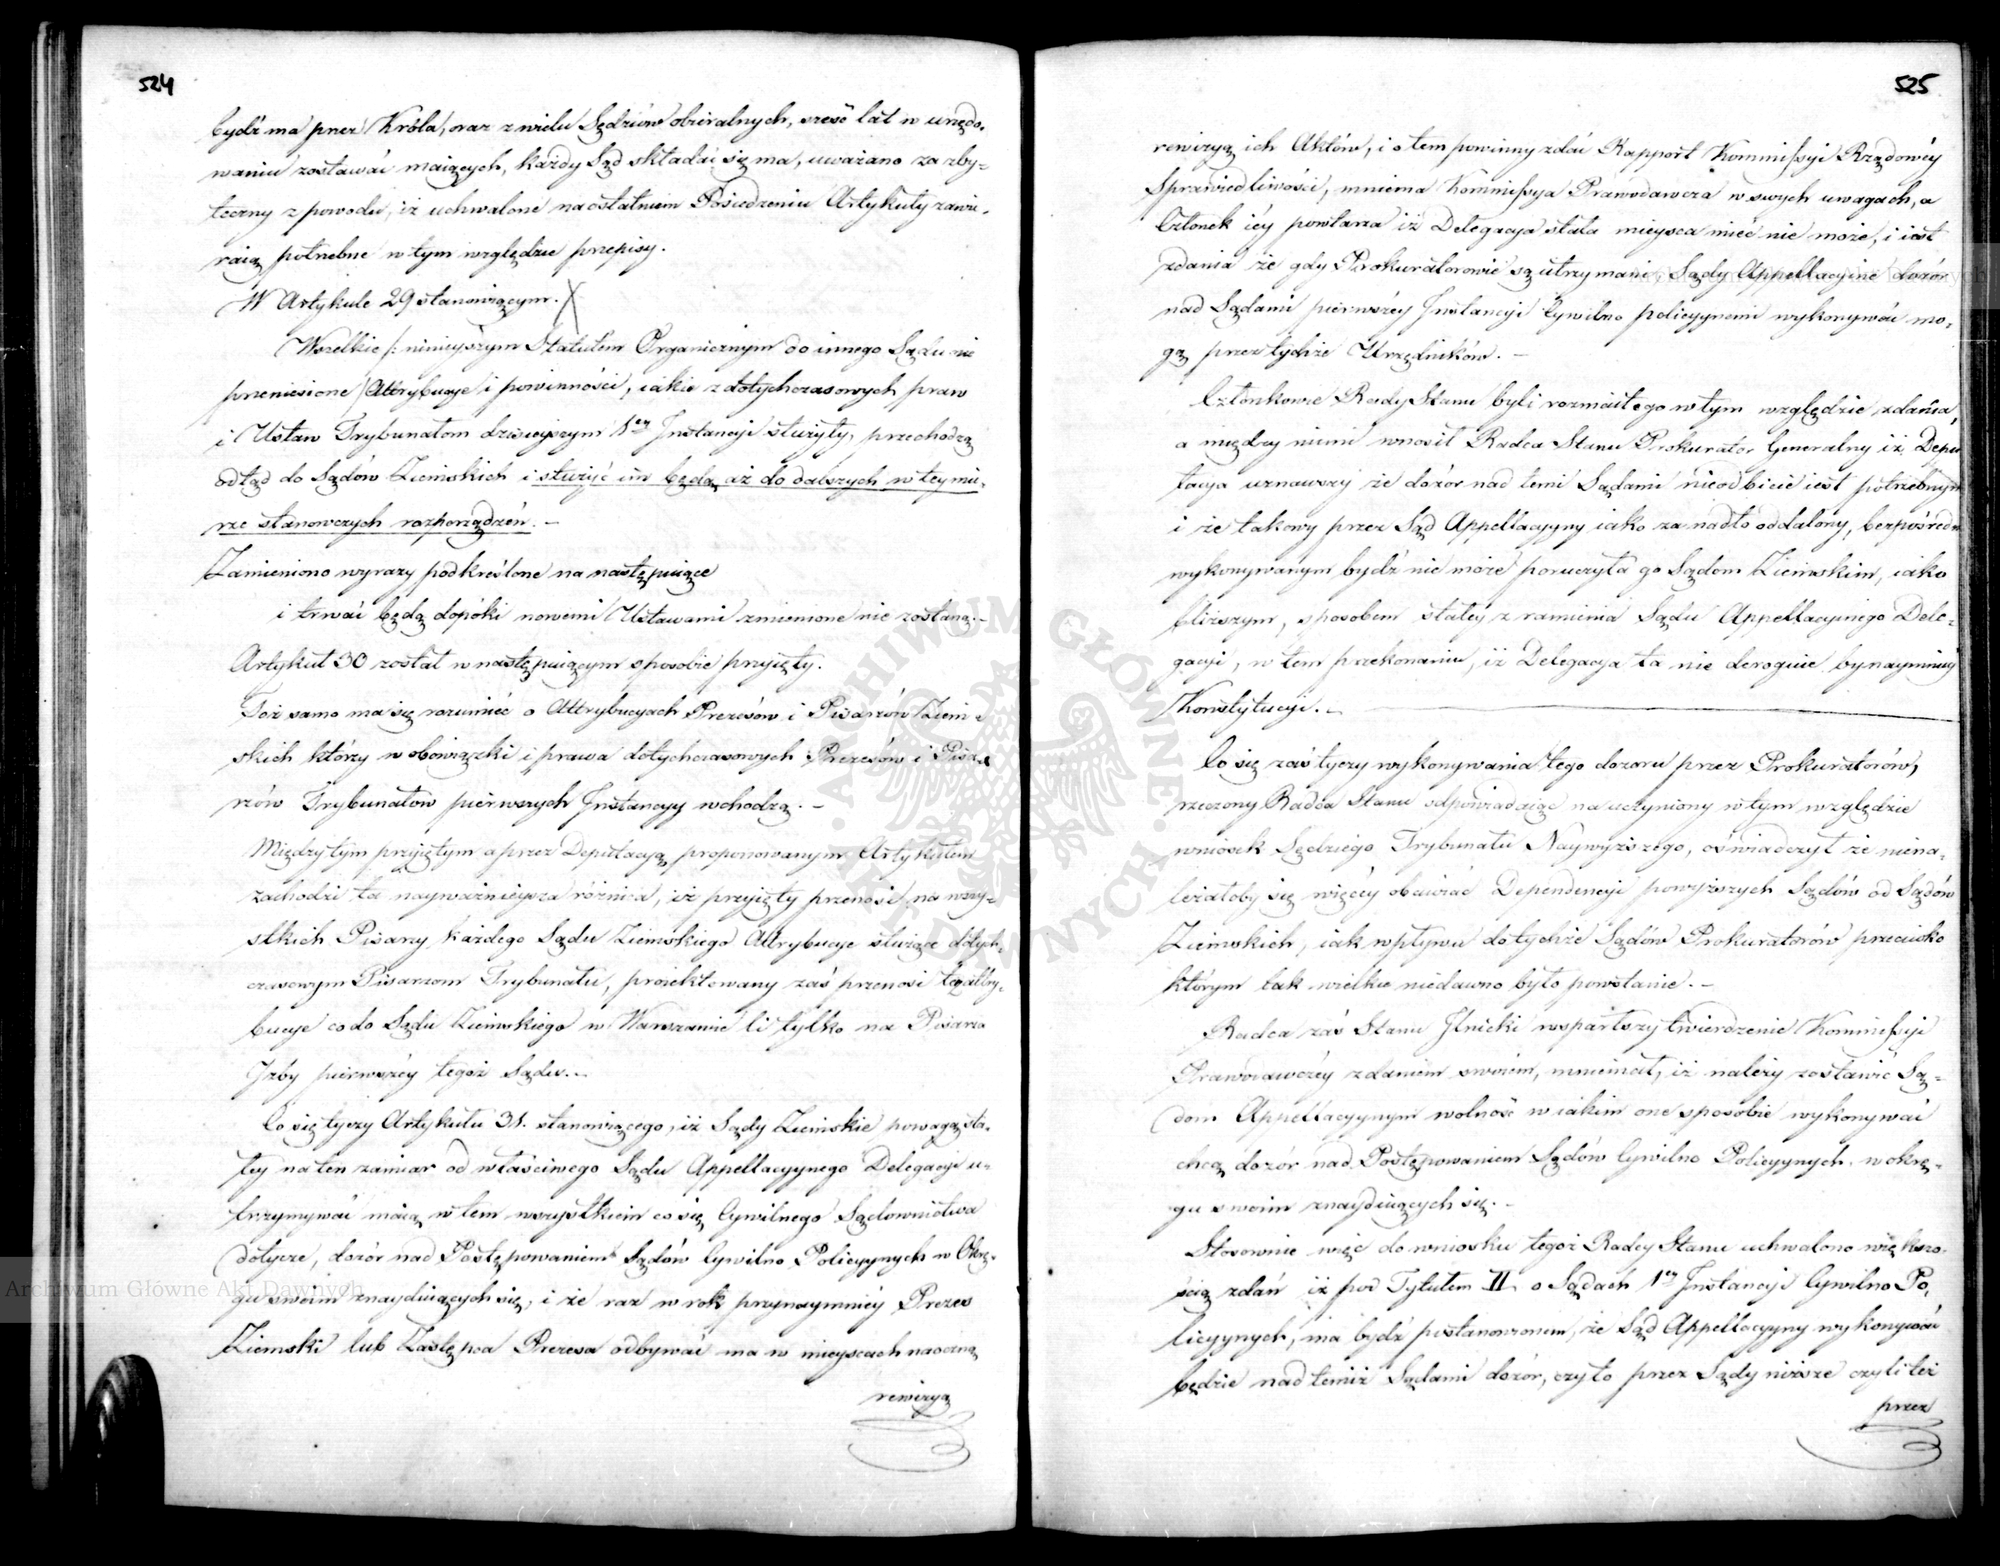 524
bydź ma przez Króla, oraz z wielu Sędziów obieralnych, sześć lat w urzędo-
waniu zostawać maiących, każdy Sąd składać się ma, uważano za zby-
teczny z powodu, iż uchwalone na ostatniem Posiedzeniu Artykuły zawie-
raią potrzebne w tym względzie przepisy.
W Artykule 29 stanowiącym. X
Wszelkie /: ninieyszym Statutem Organicznym do innego Sądu nie
przeniesione / Attrybucye i powinności, iakie z dotychczasowych praw
i Ustaw Trybunałom dzisieyszym 1ey Instancyi służyły, przechodzą
odtąd do Sądów Ziemskich i służyć im będą aż do dalszych w tey mie-
rze stanowczych rozporządzeń. –
Zamieniono wyrazy podkreślone na następuiące
i trwać będą dopóki nowemi Ustawami zmienione nie zostaną. –
Artykuł 30 został w następuiącym sposobie przyięty.
Toż samo ma się rozumieć o Attrybucyach Prezesów i Pisarzów Ziem-
skich którzy w obowiązki i prawa dotychczasowych Prezesów i Pisa-
rzów Trybunałów pierwszych Instancyy wchodzą. –
Między tym przyiętym a przez Deputacyą proponowanym Artykułem
zachodzi ta nayważnieysza różnica, iż przyięty przenosi na wszy-
stkich Pisarzy każdego Sądu Ziemskiego Attrybucye służące dotych-
czasowym Pisarzom Trybunału, proiektowany zaś przenosi też attry-
bucye co do Sądu Ziemskiego w Warszawie li tylko na Pisarza
Izby pierwszéy tegoż Sądu. –
Co się tyczy Artykułu 31. stanowiącego, iż Sądy Ziemskie powagą sta-
łey na ten zamiar od właściwego Sądu Appellacyynego Delegacyi u-
trzymywać maią w tem wszystkiem co się Cywilnego Sądownictwa
dotycze, dozór nad Postępowaniem Sądów Cywilno Policyynych w Okrę-
gu swoim znayduiących się, i że raz w rok przynaymniéy Prezes
Ziemski lub Zastępca Prezesa odbywać ma w mieyscach naoczną
rewizyą
525
rewizyą ich Aktów, i o tem powinny zdać Rapport Kommissyi Rządowéy
Sprawiedliwości, mniema Kommissya Prawodawcza w swych uwagach, a
Członek iéy powtarza iż Delegacya stała mieysca mieć nie może, i iest
zdania że gdy Prokuratorowie są utrzymani, Sądy Appellacyine dozór
nad Sądami pierwszéy Instancyi Cywilno policyynemi wykonywać mo-
gą przez tychże Urzędników. –
Członkowie Rady Stanu byli rozmaitego w tym względzie zdania,
a między niemi wnosił Radca Stanu Prokurator Generalny iż Depu
tacya uznawszy że dozór nad temi Sądami nieodbicie iest potrzebnym
i że takowy przez Sąd Appellacyyny iako za nadto oddalony, bezpośredn
wykonywanym bydź nie może poruczyła go Sądom Ziemskim, iako
bliższym, sposobem stałey z ramienia Sądu Appellacyinego Dele-
gacyi, w tem przekonaniu, iż Delegacya ta nie deroguie bynaymniey
Konstytucyi. –
Co się zaś tyczy wykonywania tego dozoru przez Prokuratorów,
rzeczony Radca Stanu odpowiadaiąc na uczyniony w tym względzie
wniosek Sędziego Trybunału Naywyższego, oświadczył że niena-
leżałoby się więcéy obawiać Dependencyi powyższych Sądów od Sądów
Ziemskich, iak wpływu do tychże Sądów Prokuratorów przeciwko
którym tak wielkie niedawno było powstanie. –
Radca zaś Stanu Ilnicki wsparłszy twierdzenie Kommissyi
Prawodawczéy zdaniem swoiem, mniemał, iż należy zostawić Są-
dom Appellacyynym wolność w iakim one sposobie wykonywać
chcą dozór nad Postępowaniem Sądów Cywilno Policyynych w okrę-
gu swoim znayduiących się. –
Stosownie więc do wniosku tegoż Radcy Stanu uchwalono większo-
ścią zdań iż pod Tytułem II o Sądach 1ey Instancyi Cywilno Po-
licyynych, ma bydź postanowionem, że Sąd Appellacyyny wykonywać
będzie nad temiż Sądami dozór, czyto przez Sądy niższe czyli też
przez
ARCHIWUM GŁÓWNE AKT DAWNYCH
Archiwum Główne Akt Dawnych